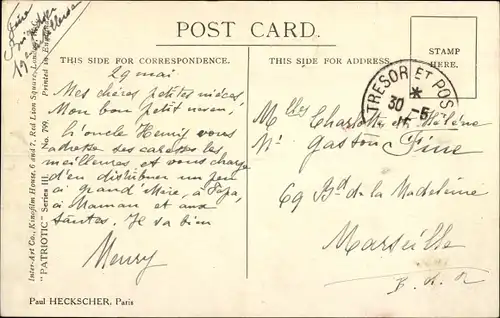 POST CARD.
THIS SIDE FOR CORRESPONDENCE.
THIS SIDE FOR ADDRESS.
STAMP
HERE.
29 mai
Mes chères petites nièces
Mon bon petit neveu,
L'oncle Henry vous
adresse ses caresses les
meilleures et vous charge
d'en distribuer un peu
à grand'Mère, à Papa,
à Maman et aux
tantes. Je va bien
Henry
Paul HECKSCHER, Paris
Inter-Art Co., Kinofilm House, 6 and 7, Red Lion Square, London
"PATRIOTIC" Series III. No. 799. Printed in
TRESOR ET POS
*
30 -5
Mlles Charlotte Hélène
Mr Gaston Fine
69 Bd de la Madeleine
Marseille
B. d. R